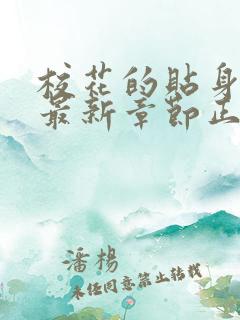 校花的贴身
最新章节正
潘楊
未经同意禁止转载